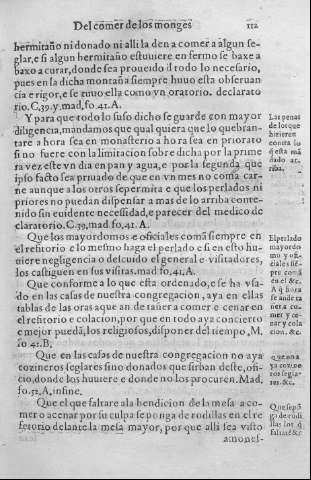 Del comer de los monges 112
hermitaño ni donado ni alli la den a comer a algun se-
glar, e si algun hermitaño estuuiere en fermo se baxe a
baxo a curar, donde sea proueido d todo lo necesario,
pues en la dicha montaña siempre huuo esta obseruan
cia e rigor, e se muo ella como vn oratorio. declarato
rio. C.39. y. mad, fo. 41. A.
Y para que todo lo suso dicho se guarde con mayor
diligencia, mandamos que qual quiera que lo quebran-
tare a hora sea en monasterio a hora sea en priorato
si no fuere con la limitacion sobre dicha por la prime
ra vez este vn dia en pan y agua, e por la segunda que
ipso facto sea priuado de que en vn mes no coma car-
ne aunque a los otros se permita e que los perlados ni
priores no puedan dispensar a mas de lo arriba conte-
nido sin euidente necessidad, e parecer del medico de
claratorio. C.39, mad. fo. 41. A.
Que los mayordomos e oficiales comã siempre en
el refitorio e lo mesmo haga el perlado e si en esto hu-
uiere negligencia o descuido el general e visitadores,
los castiguen en sus visitas. mad fo, 41, A.
Que conforme a lo que esta ordenado, e se ha vsa-
do en las casas de nuestra congregacion, aya en ellas
tablas de las oras que an de tañer a comer e cenar en
el refitorio e colacion, por que en todo aya concierto
e mejor puedã, los religiosos, disponer del tiempo, M.
fo 41. B,
Que en las casas de nuestra congregacion no aya
cozineros seglares sino donados que sirban deste, ofi-
cio, donde los huuiere e donde no los procuren. Mad.
fo. 52, A, infine.
Que el que faltare a la bendicion de la mesa a co-
mer o a cenar por su culpa se ponga de rodillas en el re
fetorio delante la mesa mayor, por que alli sea visto
amones-
Las penas
de los que
hizieren
contra lo
q̃ esta mã
dado ar-
riba.
El perlado
mayordo
mo y ofi-
ciales siē-
pre comã
en el &c.
A q̃ hora
se ande ta
ñer a co-
mer y ce-
nar y cola
cion. &c.
que no a
ya cozine
ros segla-
res. &c.
Que se põ
ga de rodi
llas los q̃
faltarẽ &c